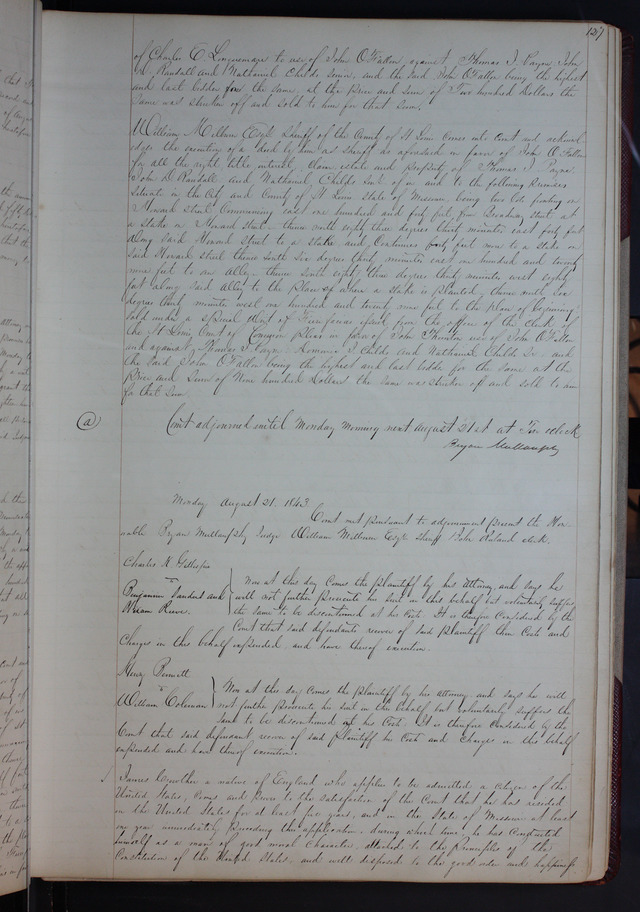 127
of Charles C. to use of John O'Fallon against Thomas J. Payne John
D. Randall and Nathaniel Childs Senr. and the said John O'Fallon being the highest
and last bidder for the same, at the Price and Sum of Two hundred Dollars the
same was stricken off and sold to him for that Sum.
William Milburn Esqr Sheriff of the County of St Louis Comes into Court and acknowl
edges the execution of a deed by him as sheriff as aforesaid in favor of John O'Fallon
for all the right title interest, claim, estate and property of Thomas J. Payne
John D Randall and Nathaniel Childs of in and to the following premises
Situate in the City and County of St Louis State of Missouri, being two Lots fronting on
Howard Street Commencing east one hundred and forty feet from Broadway Street at
a stake on Howard Street, thence north eighty three degrees thirty minutes east forty feet
along said Howard Street to a stake and Continues forty feet more to a stake on
said Howard Street thence South Six degrees thirty minutes east one hundred and twenty
nine feet to an alley, thence South eighty three degrees thirty minutes west eighty
feet along said alley to the place of where a stake is planted, thence north six
degrees thirty minutes west one hundred and twenty nine feet to the place of beginning
sold under a special Writ of Fieri facias issued from the office of the clerk of
the St Louis Court of Common Pleas in favor of John use of John O'Fallon
and against Thomas J Payne J. Childs and Nathaniel Childs Sr and
the said John O'Fallon being the highest and last bidder for the same at the
Price and Sum of Nine hundred Dollars the same was stricken off and sold to him
for that Sum.
(a) Court adjourned until Monday Morning next August 21st at Ten oclock
Bryan Mullanphy
Monday August 21. 1843.
Court met pursuant to adjournment present the Hon-
orable Bryan Mullanphy Judge William Milburn Esqr Sheriff John Ruland clerk.
Charles K. Gillespie
vs
Benjamin and
Hiram Reeve.
Now at this day Comes the plaintiff by his Attorney and says he
will not further prosecute his suit in this behalf but voluntarily suffers
the same to be discontinued at his Costs. It is therefore Considered by the
Court that said defendants recover of said Plaintiff their Costs and
Charges in this behalf expended, and have thereof execution.
Henry Bennett
vs
William Coleman
Now at this day Comes the plaintiff by his attorney and says he will
not further prosecute his suit in this behalf but voluntarily suffers the
same to be discontinued at his Costs. It is therefore Considered by the
Court that said defendant recover of said plaintiff his Costs and Charges in this behalf
expended and have thereof execution.
James Crowther a native of England who applies to be admitted a citizen of the
United States, Comes and proves to the satisfaction of the Court that he has resided
in the United States for at least five years, and in the State of Missouri at least
one year immediately preceding this application, during which time he has Conducted
himself as a man of good moral character, attached to the principles of the
Constitution of the United States, and well disposed to the good order and happiness